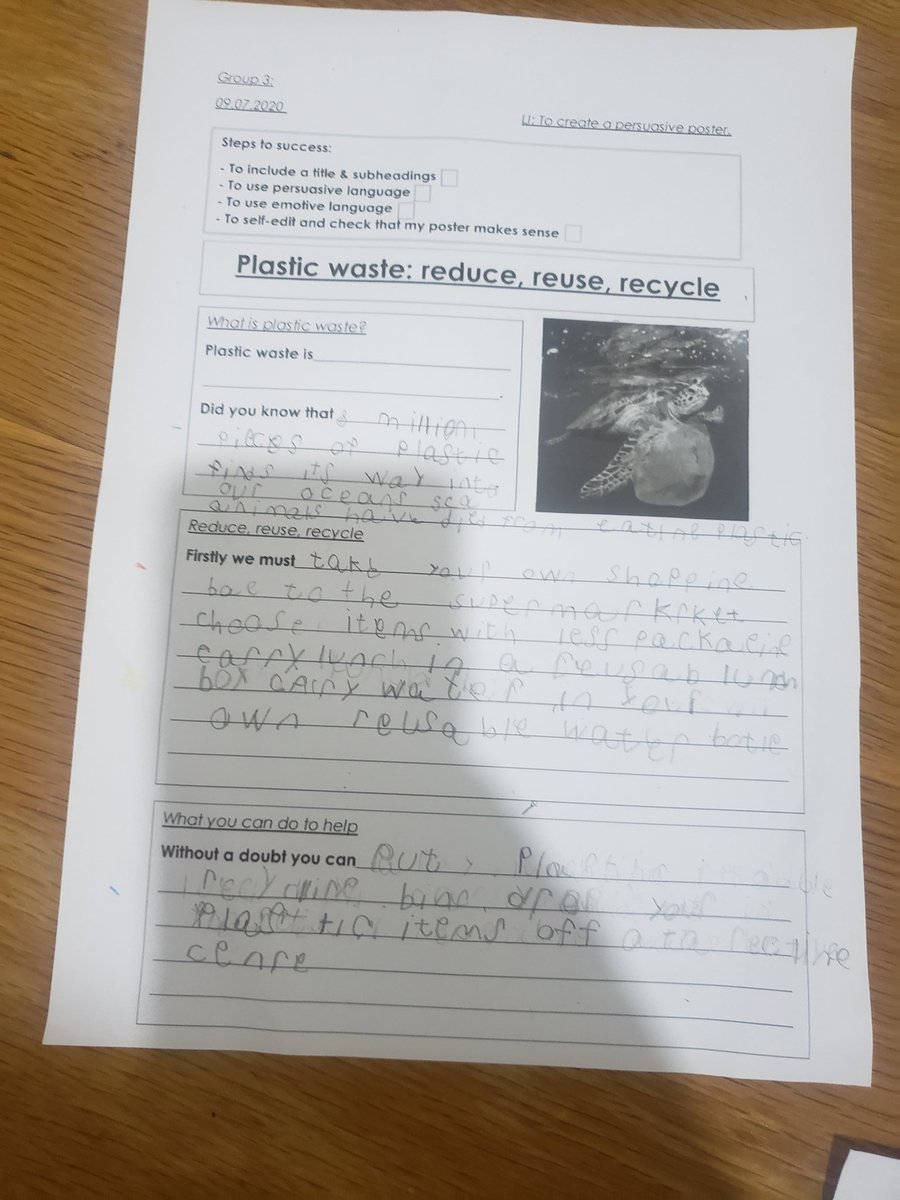 Group 3:
09.07.2020
LI: To create a persuasive poster.
Steps to success:
- To include a title & subheadings
- To use persuasive language
- To use emotive language
- To self-edit and check that my poster makes sense
Plastic waste: reduce, reuse, recycle
What is plastic waste?
Plastic waste is
Did you know that 8 million
pieces of plastic
finds its way into
our oceans sea
animals have from eating plastic
Reduce, reuse, recycle
Firstly we must take your own shopping
bag to the supermarkrket
choose items with less packaging
carry lunch in a reusab lunch
box carry water in your
own reusable water botle
What you can do to help
Without a doubt you can Put
your
items off
cenre